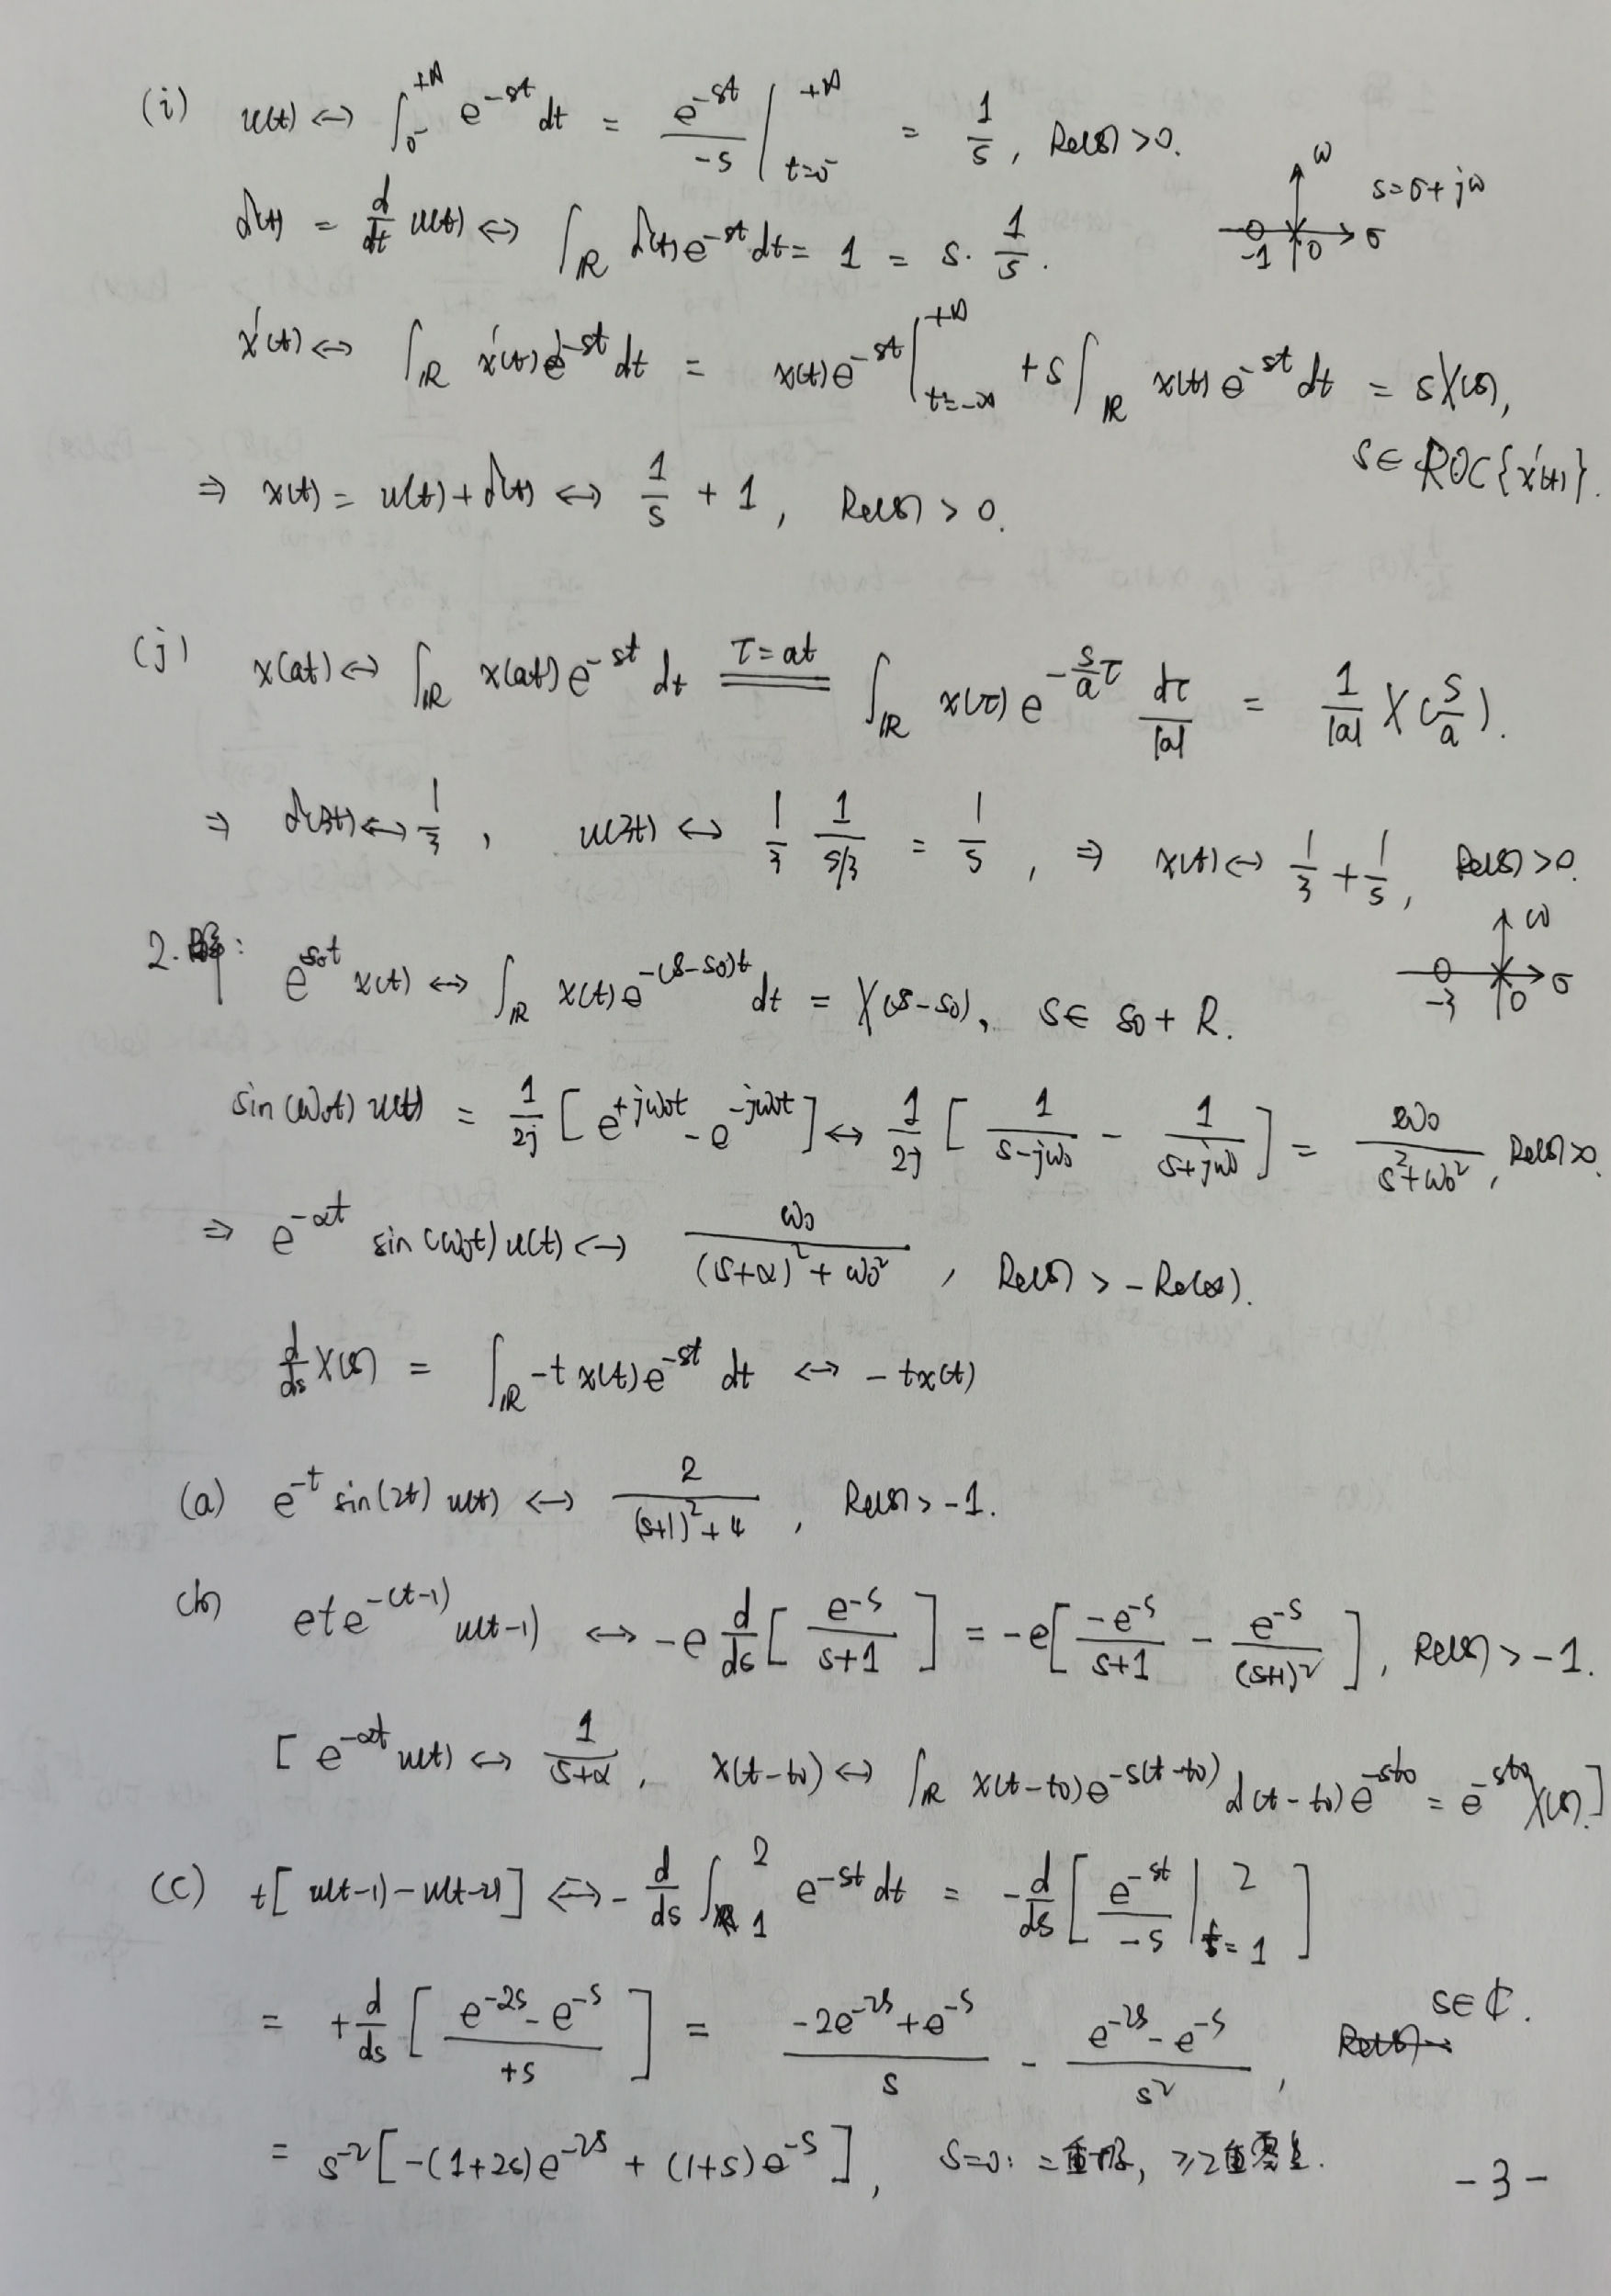 (i) u(t) ↔ ∫_{0⁻}^{+∞} e^{-st} dt = e^{-st}/(-s) |_{t=0⁻}^{+∞} = 1/s, Re(s) > 0.
δ(t) = d/dt u(t) ↔ ∫_ℝ δ(t) e^{-st} dt = 1 = s · 1/s.
ω
s = σ + jω
-1 0 σ
x'(t) ↔ ∫_ℝ x'(t) e^{-st} dt = x(t) e^{-st} |_{t=-∞}^{+∞} + s ∫_ℝ x(t) e^{-st} dt = sX(s),
s ∈ ROC{x'(t)}.
⇒ x(t) = u(t) + δ(t) ↔ 1/s + 1, Re(s) > 0.
(j) x(at) ↔ ∫_ℝ x(at) e^{-st} dt \overset{τ=at}{=} ∫_ℝ x(τ) e^{-\frac{s}{a}τ} dτ/|a| = 1/|a| X(s/a).
⇒ δ(3t) ↔ 1/3, u(3t) ↔ 1/3 · 1/(s/3) = 1/s, ⇒ x(t) ↔ 1/3 + 1/s, Re(s) > 0.
ω
-3 0 σ
2. 解: e^{s₀t} x(t) ↔ ∫_ℝ x(t) e^{-(s-s₀)t} dt = X(s-s₀), s ∈ s₀ + R.
sin(ω₀t) u(t) = 1/2j [e^{+jω₀t} - e^{-jω₀t}] ↔ 1/2j [1/(s-jω₀) - 1/(s+jω₀)] = ω₀/(s²+ω₀²), Re(s) > 0.
⇒ e^{-αt} sin(ω₀t) u(t) ↔ ω₀/((s+α)² + ω₀²), Re(s) > -Re(α).
d/ds X(s) = ∫_ℝ -t x(t) e^{-st} dt ↔ -tx(t)
(a) e^{-t} sin(2t) u(t) ↔ 2/((s+1)²+4), Re(s) > -1.
(b) e t e^{-(t-1)} u(t-1) ↔ -e d/ds [e^{-s}/(s+1)] = -e[-e^{-s}/(s+1) - e^{-s}/(s+1)²], Re(s) > -1.
[e^{-αt} u(t) ↔ 1/(s+α), x(t-t₀) ↔ ∫_ℝ x(t-t₀) e^{-s(t-t₀)} d(t-t₀) e^{-st₀} = e^{-st₀} X(s).]
(c) t[u(t-1) - u(t-2)] ↔ - d/ds ∫_1^2 e^{-st} dt = - d/ds [e^{-st}/(-s) |_{t=1}^{2}]
= + d/ds [(e^{-2s} - e^{-s})/(+s)] = (-2e^{-2s} + e^{-s})/s - (e^{-2s} - e^{-s})/s², s ∈ ℂ.
= s^{-2} [-(1+2s) e^{-2s} + (1+s) e^{-s}], s=0: 二重极, ≥2重零点.
-3-